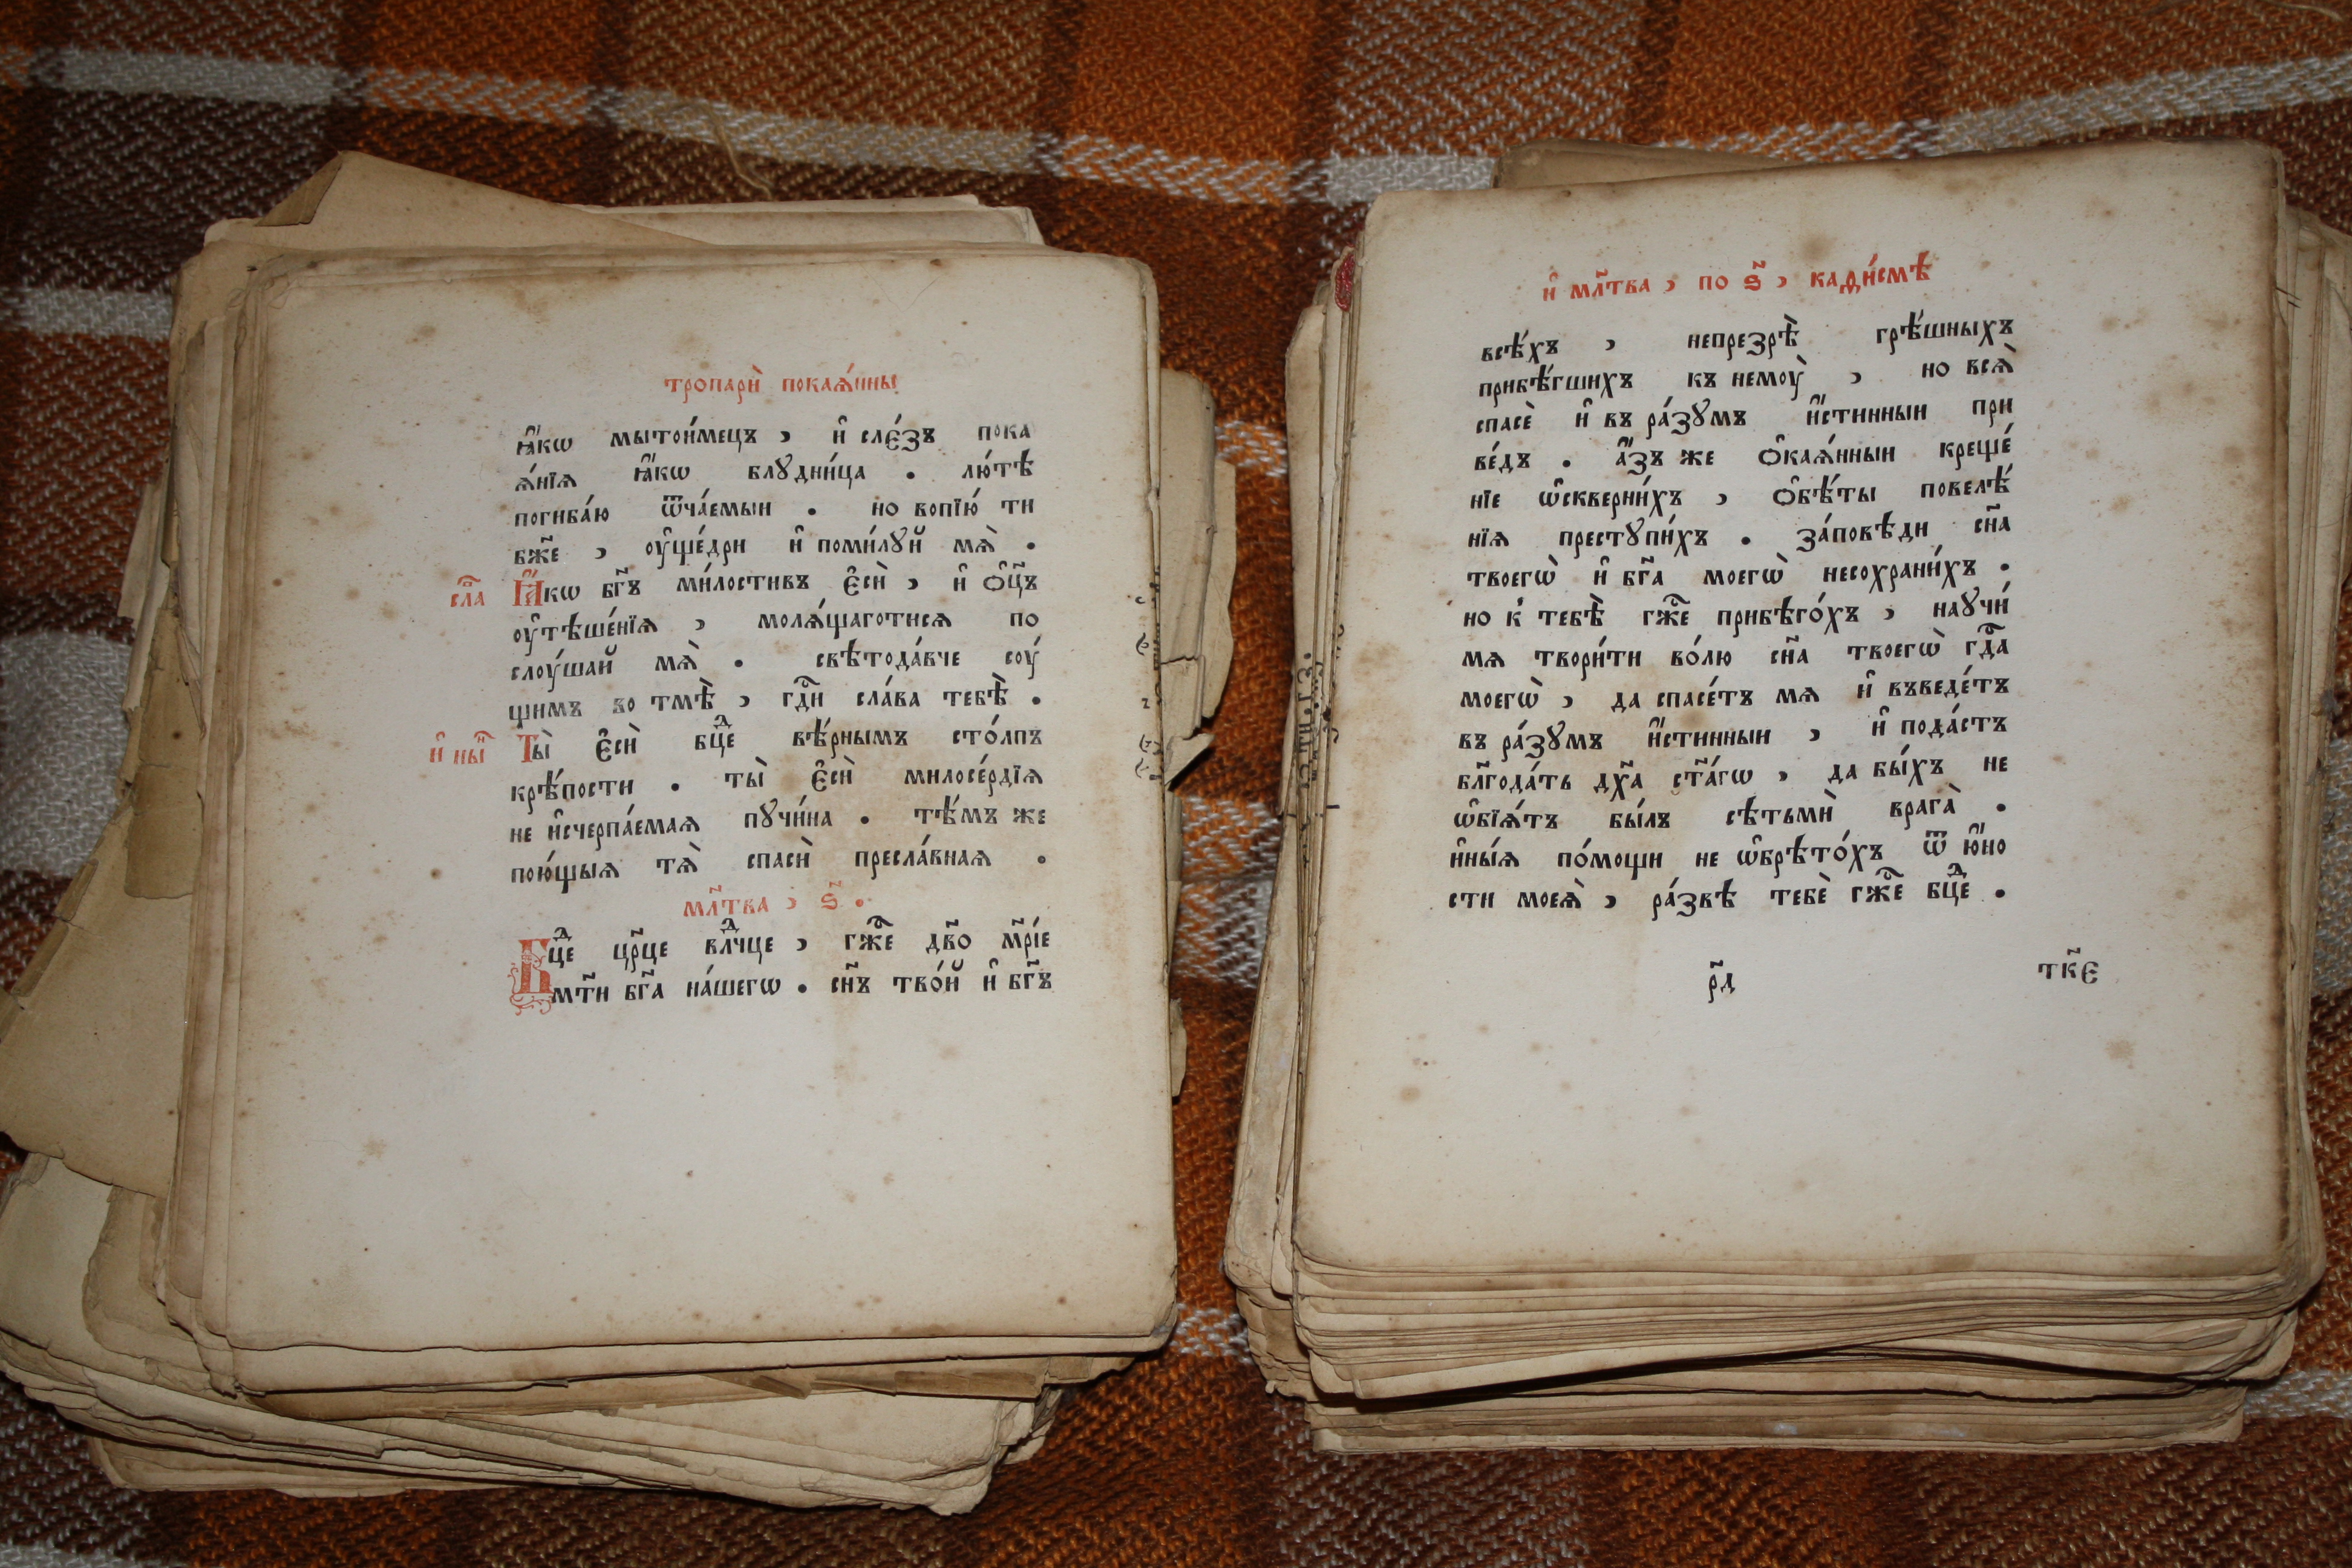 тропарѝ покаѧ́нны
ꙗ҆́кѡ мытои́мецъ , и҆ сле́зъ пока
ѧ́нїѧ ꙗ҆́кѡ блꙋдни́ца . лю́тѣ
погиба́ю ѿча́емыи . но вопїю́ ти
бж҃е , оу҆ще́дри и҆ поми́лꙋй мѧ̀ .
сла̑ Ꙗ҆́кѡ бг҃ъ ми́лостивъ є҆сѝ , и҆ ѻ҆ц҃ъ
оу҆тѣше́нїѧ , молѧ́щаготисѧ по
слоу́шай мѧ̀ . свѣтода́вче соу́
щимъ во тмѣ̀ , гдⷭ҇и сла́ва тебѣ̀ .
и҆ ны҃ Ты̀ є҆сѝ бцⷣе вѣ́рнымъ сто́лпъ
крѣ́пости . ты̀ є҆сѝ милосе́рдїѧ
не и҆счерпа́емаѧ пꙋчи́на . тѣ́мъ же
пою́щыѧ тѧ̀ спасѝ пресла́внаѧ .
мл҃тва , ѕ҃ .
Бцⷣе цр҃це влⷣчце , гжⷭ҇е дв҃о мр҃і́е
мт҃и бг҃а на́шегѡ . сн҃ъ тво́й и҆ бг҃ъ
и҆ мл҃тва , по ѕ҃ , каѳи́смѣ
всѣ́хъ , непрезрѣ̀ грѣ́шныхъ
прибѣ́гшихъ къ немоу̀ , но всѧ̀
спасѐ и҆ въ ра́зꙋмъ и҆́стинныи при
ве́дъ . а҆́зъ же ѻ҆каѧ́нныи креще́
нїе ѡ҆скверни́хъ , ѻ҆бѣ́ты повелѣ́
нїѧ престꙋпи́хъ . за́повѣди сн҃а
твоегѡ̀ и҆ бг҃а моегѡ̀ несохрани́хъ .
но к̾ тебѣ̀ гжⷭ҇е прибѣго́хъ , наꙋчи́
мѧ твори́ти во́лю сн҃а твоегѡ̀ гдⷭ҇а
моегѡ̀ , да спасе́тъ мѧ и҆ въведе́тъ
въ ра́зꙋмъ и҆́стинныи , и҆ пода́стъ
бл҃года́ть дх҃а ст҃а́гѡ , да бы́хъ не
ѡ҆бїѧ́тъ бы́лъ сѣтьмѝ врага̀ .
и҆ны́ѧ по́мощи не ѡ҆брѣто́хъ ѿ ю҆́но
сти моеѧ̀ , ра́звѣ тебѐ гжⷭ҇е бцⷣе .
р҃д тк҃є